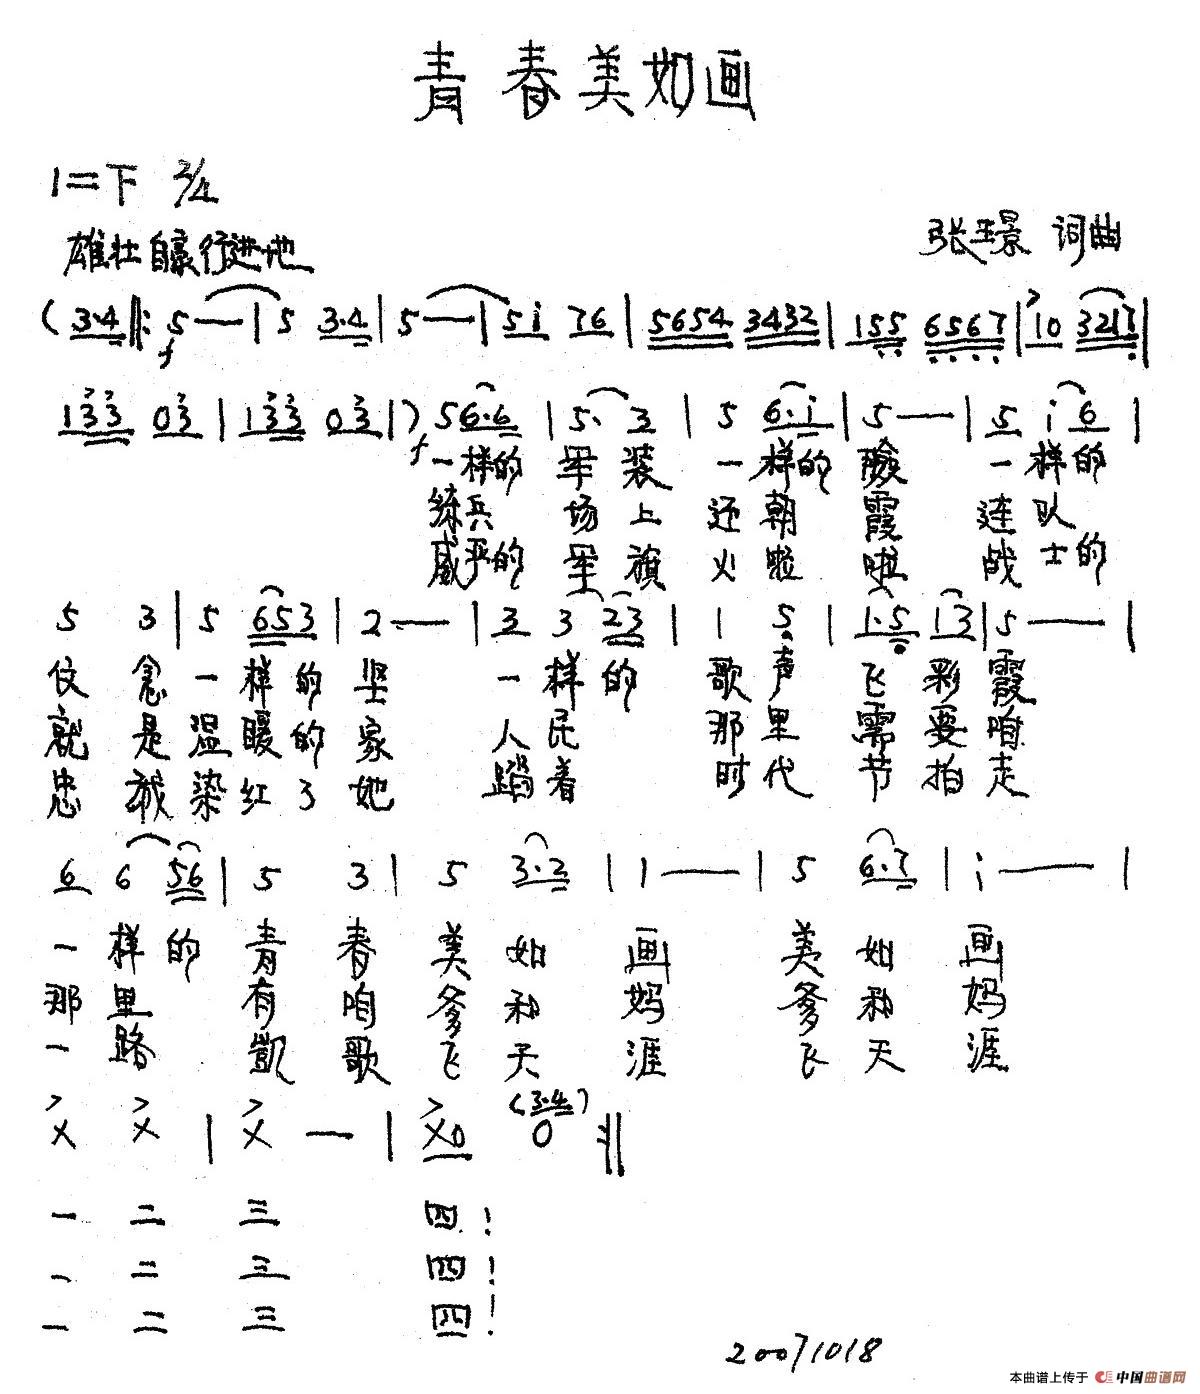 青春美如画
1=下 2/4
雄壮自豪行进地
张玉景 词曲
( 3·4 ‖: 5 — | 5 3·4 | 5 — | 5i 76 | 5654 3432 | 155 6567 | 10 3217 |
133 03 | 133 03 | ) 5 6·6 | 5· 3 | 5 6·i | 5 — | 5 i 6 |
f 一样的 军装 一样的 脸 一样的
练兵 场上 还朝 霞 连队
威严的 军旗 火啦 啦 战士的
5 3 | 5 653 | 2 — | 3 3 23 | 1 5 | 1·5 13 | 5 — |
仗念一样的坚 一样的 歌声飞彩霞
就是温暖的家 人民 那里需要咱
忠诚染红了她 踏着 时代节拍走
6 6 56 | 5 3 | 5 3·2 | 1 — | 5 6·7 | i — |
一样的 青春美如画 美如画
那里 有咱爹和妈 爹和妈
一路 凯歌飞天涯 飞天涯
(3·4)
X X | X — | X0 0 :‖
一 二 三 四!
一 二 三 四!
一 二 三 四!
20071018
本曲谱上传于 中国曲谱网